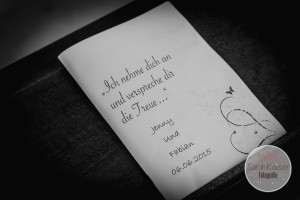 „Ich nehme dich an
und verspreche dir
die Treue..."
Jenny
und
Fabian
06.06.2015
Fotografie